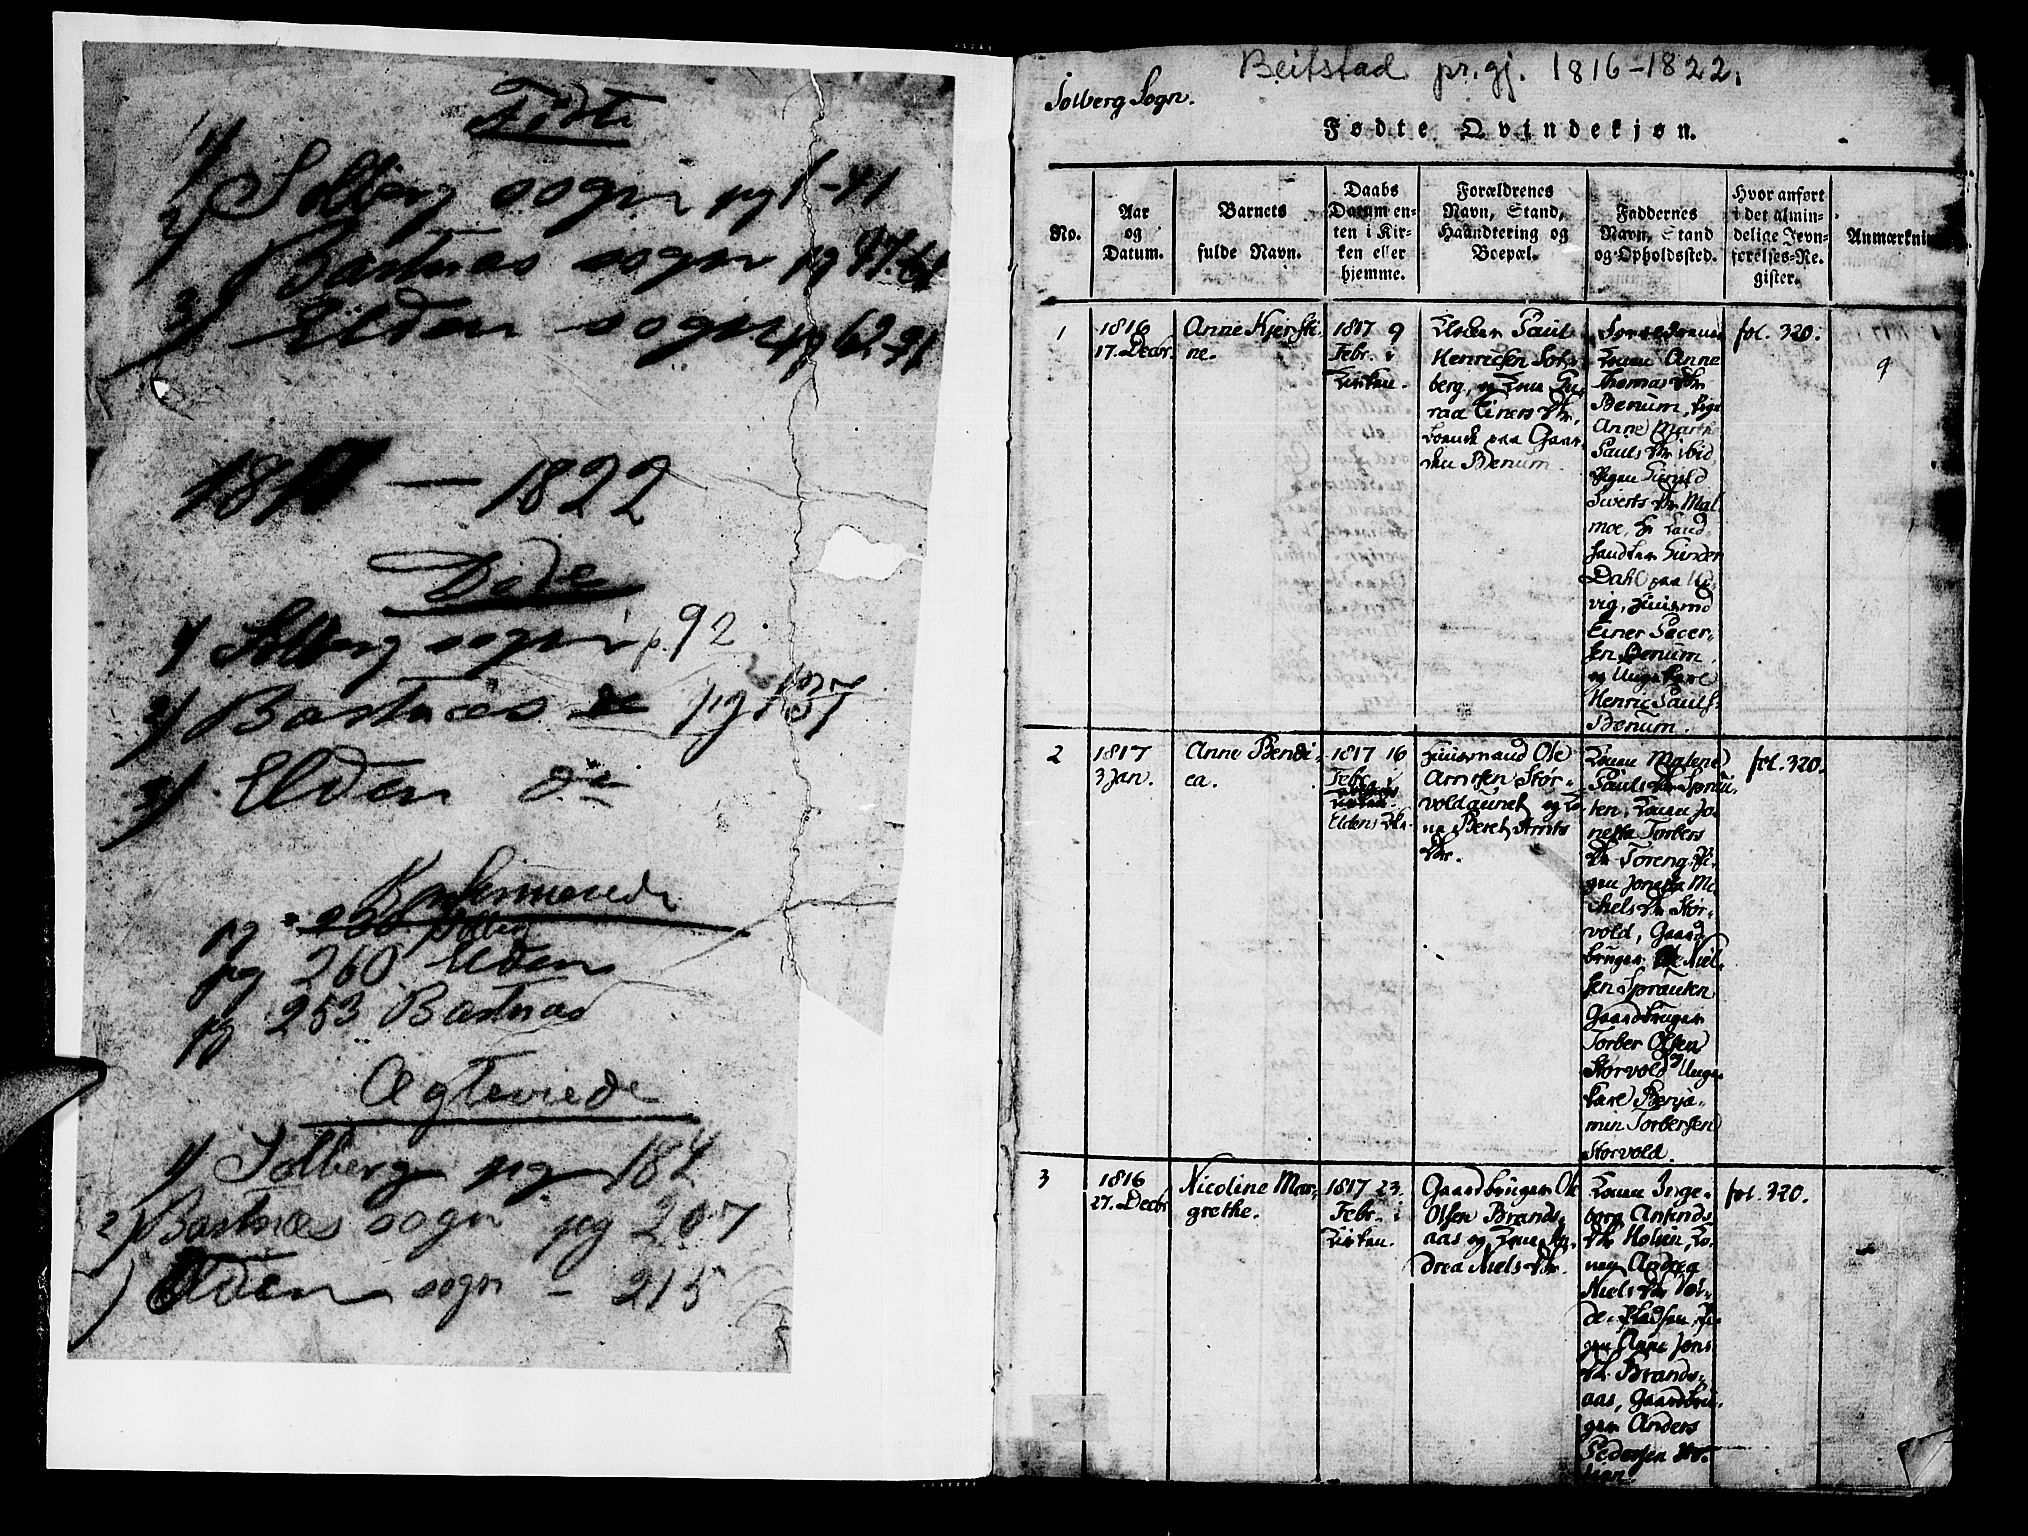 Fødte
1/ Solberg sogn pg 1-41
2/ Bastnæs sogn pg
3/ Elden sogn pg 62-91
181 — 1822
Døde
1/ Solberg sogn p. 92
2/ Bastnæs do pg 137
3/ Elden do
Konfirmerede
pg 230 Solberg
pg 260 Elden
pg 253 Bastnæs
Ægteviede
1/ Solberg pg 184
2/ Bastnæs sogn pg 207
) Elden sogn - 215
Beitstad pr.gj. 1816-1822.
Solberg Sogn.
Fødte Qvindekjøn.
No.
Aar
og
Datum.
Barnets
fulde Navn.
Daabs
Datum en-
ten i Kir-
ken eller
hjemme.
Forældrenes
Navn, Stand,
Haandtering og
Boepæl.
Faddernes
Navn, Stand
og Opholdssted.
Hvor anført
i det almin-
delige Jevn-
førelses-Re-
gister.
Anmærkni
1
1816
17. Decbr.
Anne Kjersti-
ne.
1817 9
Febr. i
Kirken.
Klokker Paul
Henricsen Sol-
berg, og Kone Gu-
roe Einers Dtr.
boende paa Gaar-
den Benum.
Konen Anne
Thomas Dtr
Benum, Pige
Anne Marth
Pauls Dtr ibid
Pigen Gunild
Siverts Dtr Mal-
moe, Hr Land
handler Günder
Dahl paa
vig, Huusmd
Einer Peder-
sen Benum,
og Ungekarl
Henric Pauls
Benum.
fol. 320.
2
1817
3 Jan.
Anne Bendi-
ca.
1817 16
Febr. i
Eldens Kk.
Huusmand Ole
Arntsen Stor-
voldaunet og Ko-
ne Beret Arnts
Dtr.
Konen Malene
Pauls Dtr Sprau-
ten, Konen Jo-
netta Torbers
Dtr Foreng. Pi-
gen Jonetta Mi-
chels Dtr Stor-
vold, Gaard-
bruger Ole Niel-
sen Sprauten
Gaardbruger
Torber Olsen
Storvold og Unge-
karl Benja-
min Torbersen
Storvold.
fol. 320.
3
1816
27. Decbr
Nicoline Mar-
grethe.
1817 23.
Febr. i
Kirken.
Gaardbruger Ole
Olsen Brands-
aas og Kone An-
drea Niels Dtr.
Konen Inge-
borg Anfinds
Dtr Holien, Ko-
nen Andrea
Niels Dtr
de-Pladsen, Pi-
gen Anne Jons
Dtr. Brands-
aas, Gaardbru-
ger Anders
Pedersen
fol. 320.